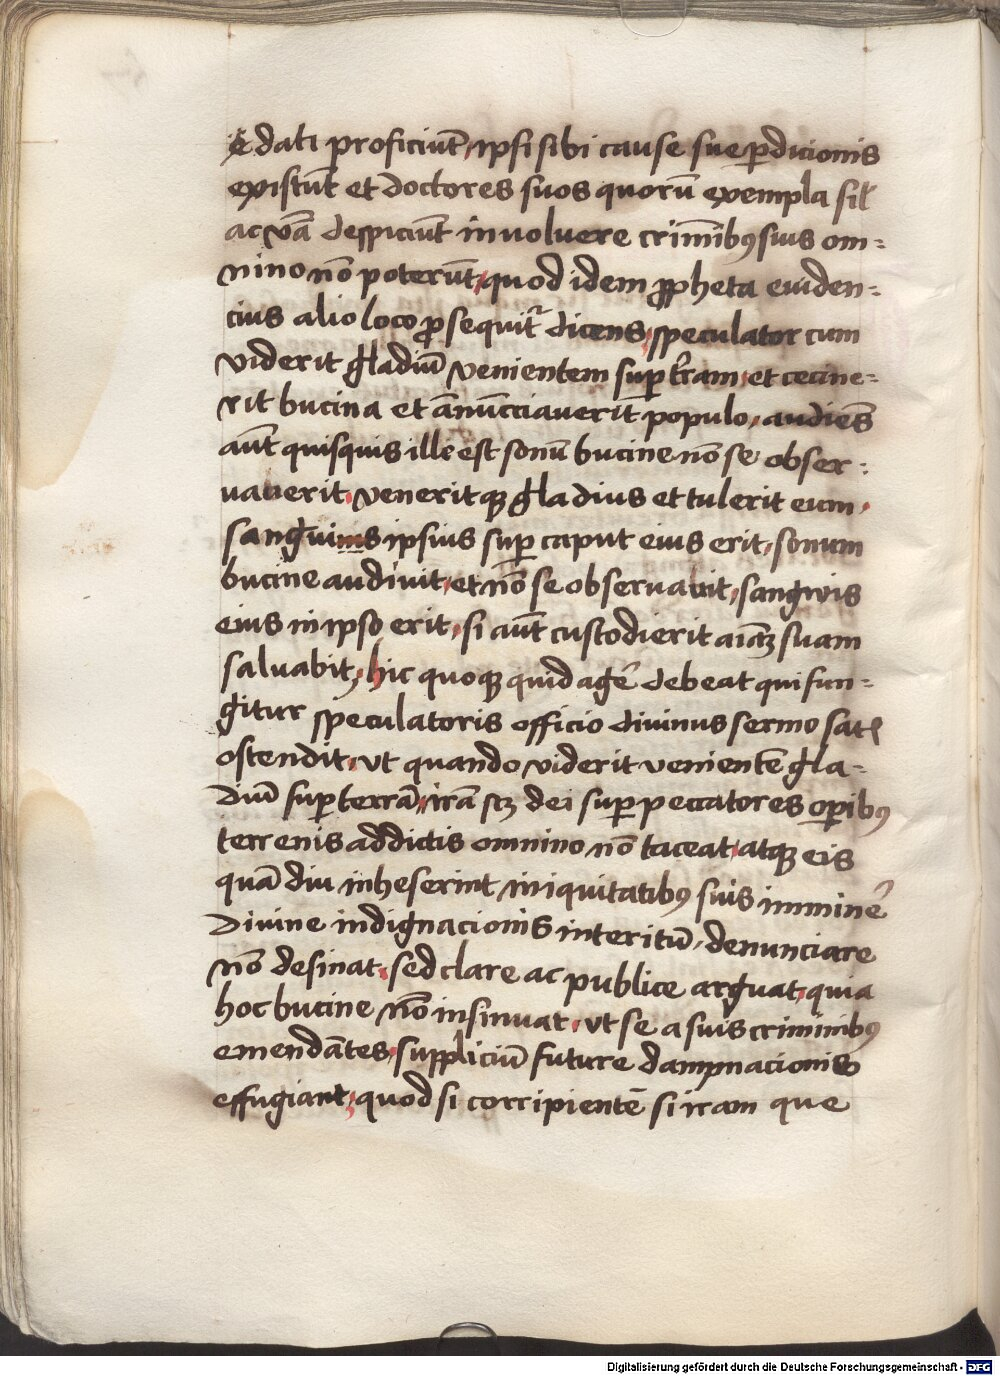 dati proficiūt, ipsi sibi cause sue ꝑdicionis
existūt et doctores suos quorū exempla sil̄
ac v̄ba despiciūt involuere crimībꝰ suis om=
nino nō poterūt, quod idem ꝓpheta euiden=
cius alio loco ꝓsequit᷑ dicens, speculator cum
viderit gladiū venientem suꝑ t̄ram, et cecine=
rit bucina et ānūcciauerit populo, audiēs
aūt quisquis ille est sonū bucine nō se obser=
uauerit, veneritqꝫ gladius et tulerit eum,
sanguinis ipsius suꝑ caput eius erit, sonum
bucine audiuit, et nō se obseruabit, sangwis
eius in ipso erit, si aūt custodierit aīaꝫ suam
saluabit, hic quoqꝫ quid ager̄ debeat qui fun=
gitur speculatoris officio diuinus sermo satꝭ
ostendit, vt quando viderit venientē gla=
diū suꝑ terrā, irā scꝫ dei suꝑ peccatores oꝑibꝰ
terrenis addictis omnino nō taceat, atqꝫ eis
quā diu inheserint iniquitatibꝰ suis imminer̄
diuine indignacionis interitū, denunciare
nō desinat, sed clare ac publice arguat, quia
hoc bucine nō insinuat, vt se a suis criminibꝰ
emendātes, suppliciū future dampnacionis
effugiant, quod si corripientē si iram que
Digitalisierung gefördert durch die Deutsche Forschungsgemeinschaft - DFG